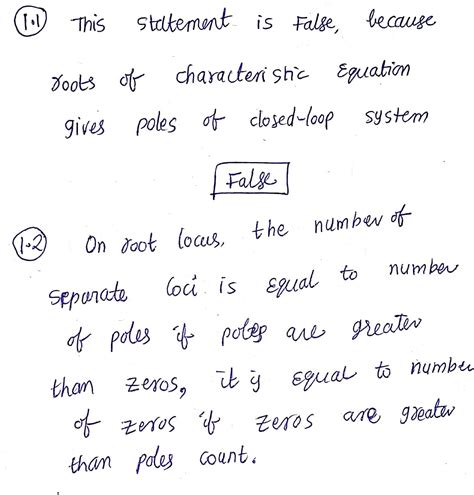 1.1 This statement is False, because
roots of characteristic Equation
gives poles of closed-loop system
False
1.2 On root locus, the number of
separate loci is equal to number
of poles if poles are greater
than zeros, it is equal to number
of zeros if zeros are greater
than poles count.